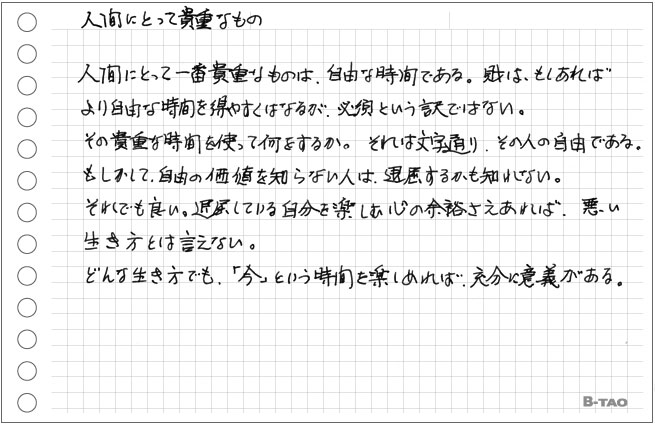 人間にとって貴重なもの
人間にとって一番貴重なものは、自由な時間である。財は、もしあれば
より自由な時間を得やすくはなるが、必須という訳ではない。
その貴重な時間を使って何をするか。それは文字通り、その人の自由である。
もしかして、自由の価値を知らない人は、退屈するかも知れない。
それでも良い。退屈している自分を楽しむ心の余裕さえあれば、悪い
生き方とは言えない。
どんな生き方でも、「今」という時間を楽しめれば、充分に意義がある。
B-TAO